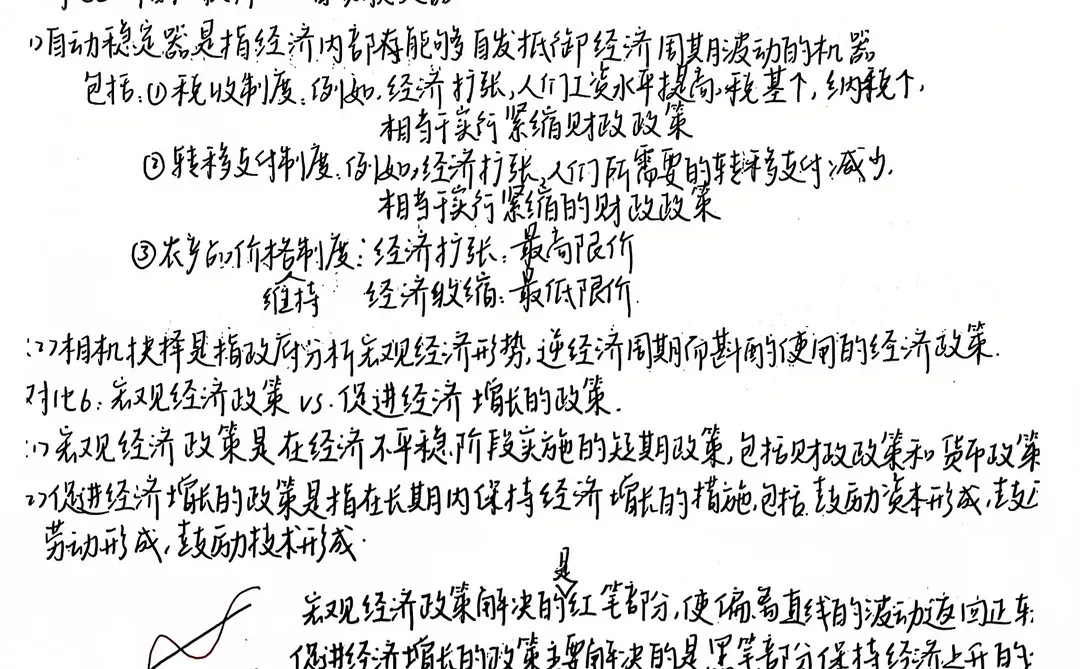 (1)自动稳定器是指经济内部存能够自发抵御经济周期波动的机器
包括:①税收制度:例如,经济扩张,人们工资水平提高,税基个,纳税个,
相当于实行紧缩财政政策
②转移支付制度:例如,经济扩张,人们所需要的转移支付减少,
相当于实行紧缩的财政政策
③农产品价格制度:经济扩张:最高限价
维持 经济收缩:最低限价.
(2)相机抉择是指政府分析宏观经济形势,逆经济周期而斟酌使用的经济政策.
对比6:宏观经济政策 vs.促进经济增长的政策.
(1)宏观经济政策是在经济不平稳阶段实施的短期政策,包括财政政策和货币政策
(2)促进经济增长的政策是指在长期内保持经济增长的措施,包括鼓励资本形成,鼓
劳动形成,鼓励技术形成.
是
宏观经济政策解决的红笔部分,使偏离直线的波动返回正
促进经济增长的政策主要解决的是黑笔部分保持经济上升的